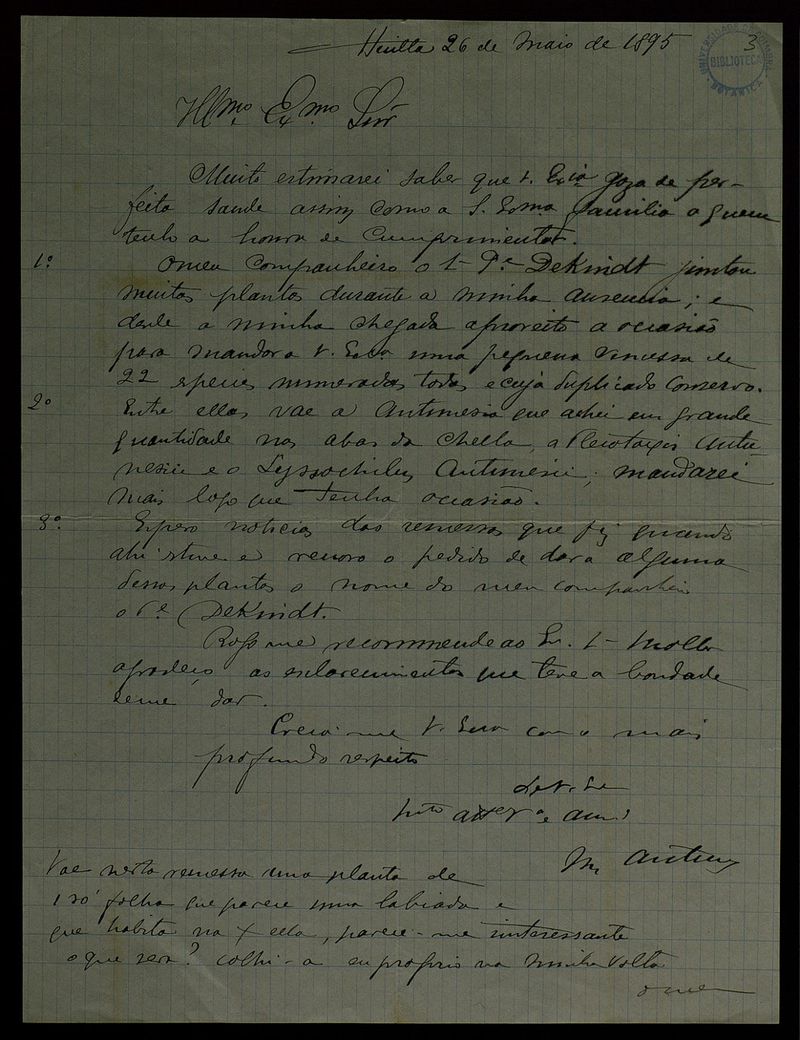 Huilla 26 de Maio de 1895
3
UNIVERSIDADE DE COIMBRA
BIBLIOTECA
BOTANICA
Illmo. Exmo Snr
Muito estimarei saber que V. Excia goza de per-
feita saude assim como a S. Exma familia a quem
tenho a honra de cumprimentar.
1º O meu companheiro o Pe Dekindt juntou
muitas plantas durante a minha ausencia; e
desde a minha chegada aproveito a occasião
para mandar a V. Exa uma pequena remessa de
22 species numeradas todas e cujo duplicado conservo.
2º Entre ellas vae a Antunesia que achei em grande
quantidade nas abas da Chella, a Pleiotaxis Antu-
nesii e o Lyssochilus Antunesii; mandarei
mais logo que tenha occasião.
3º Espero noticias das remessas que fiz quando
ahi estive e renovo o pedido de dar a alguma
dessas plantas o nome do meu companheiro
o Pe Dekindt.
Rogo me recommende ao Sr. Moller
agradeço os esclarecimentos que teve a bondade
de me dar.
Creia-me V. Exa com o mais
profundo respeito
De V. Ex
Mto attº Vor e am
M. Antunes
Vae nesta remessa uma planta de
1 só folha que parece uma labiada e
que habita na Chella, parece-me interessante
o que sera? colhi-a eu proprio na minha volta